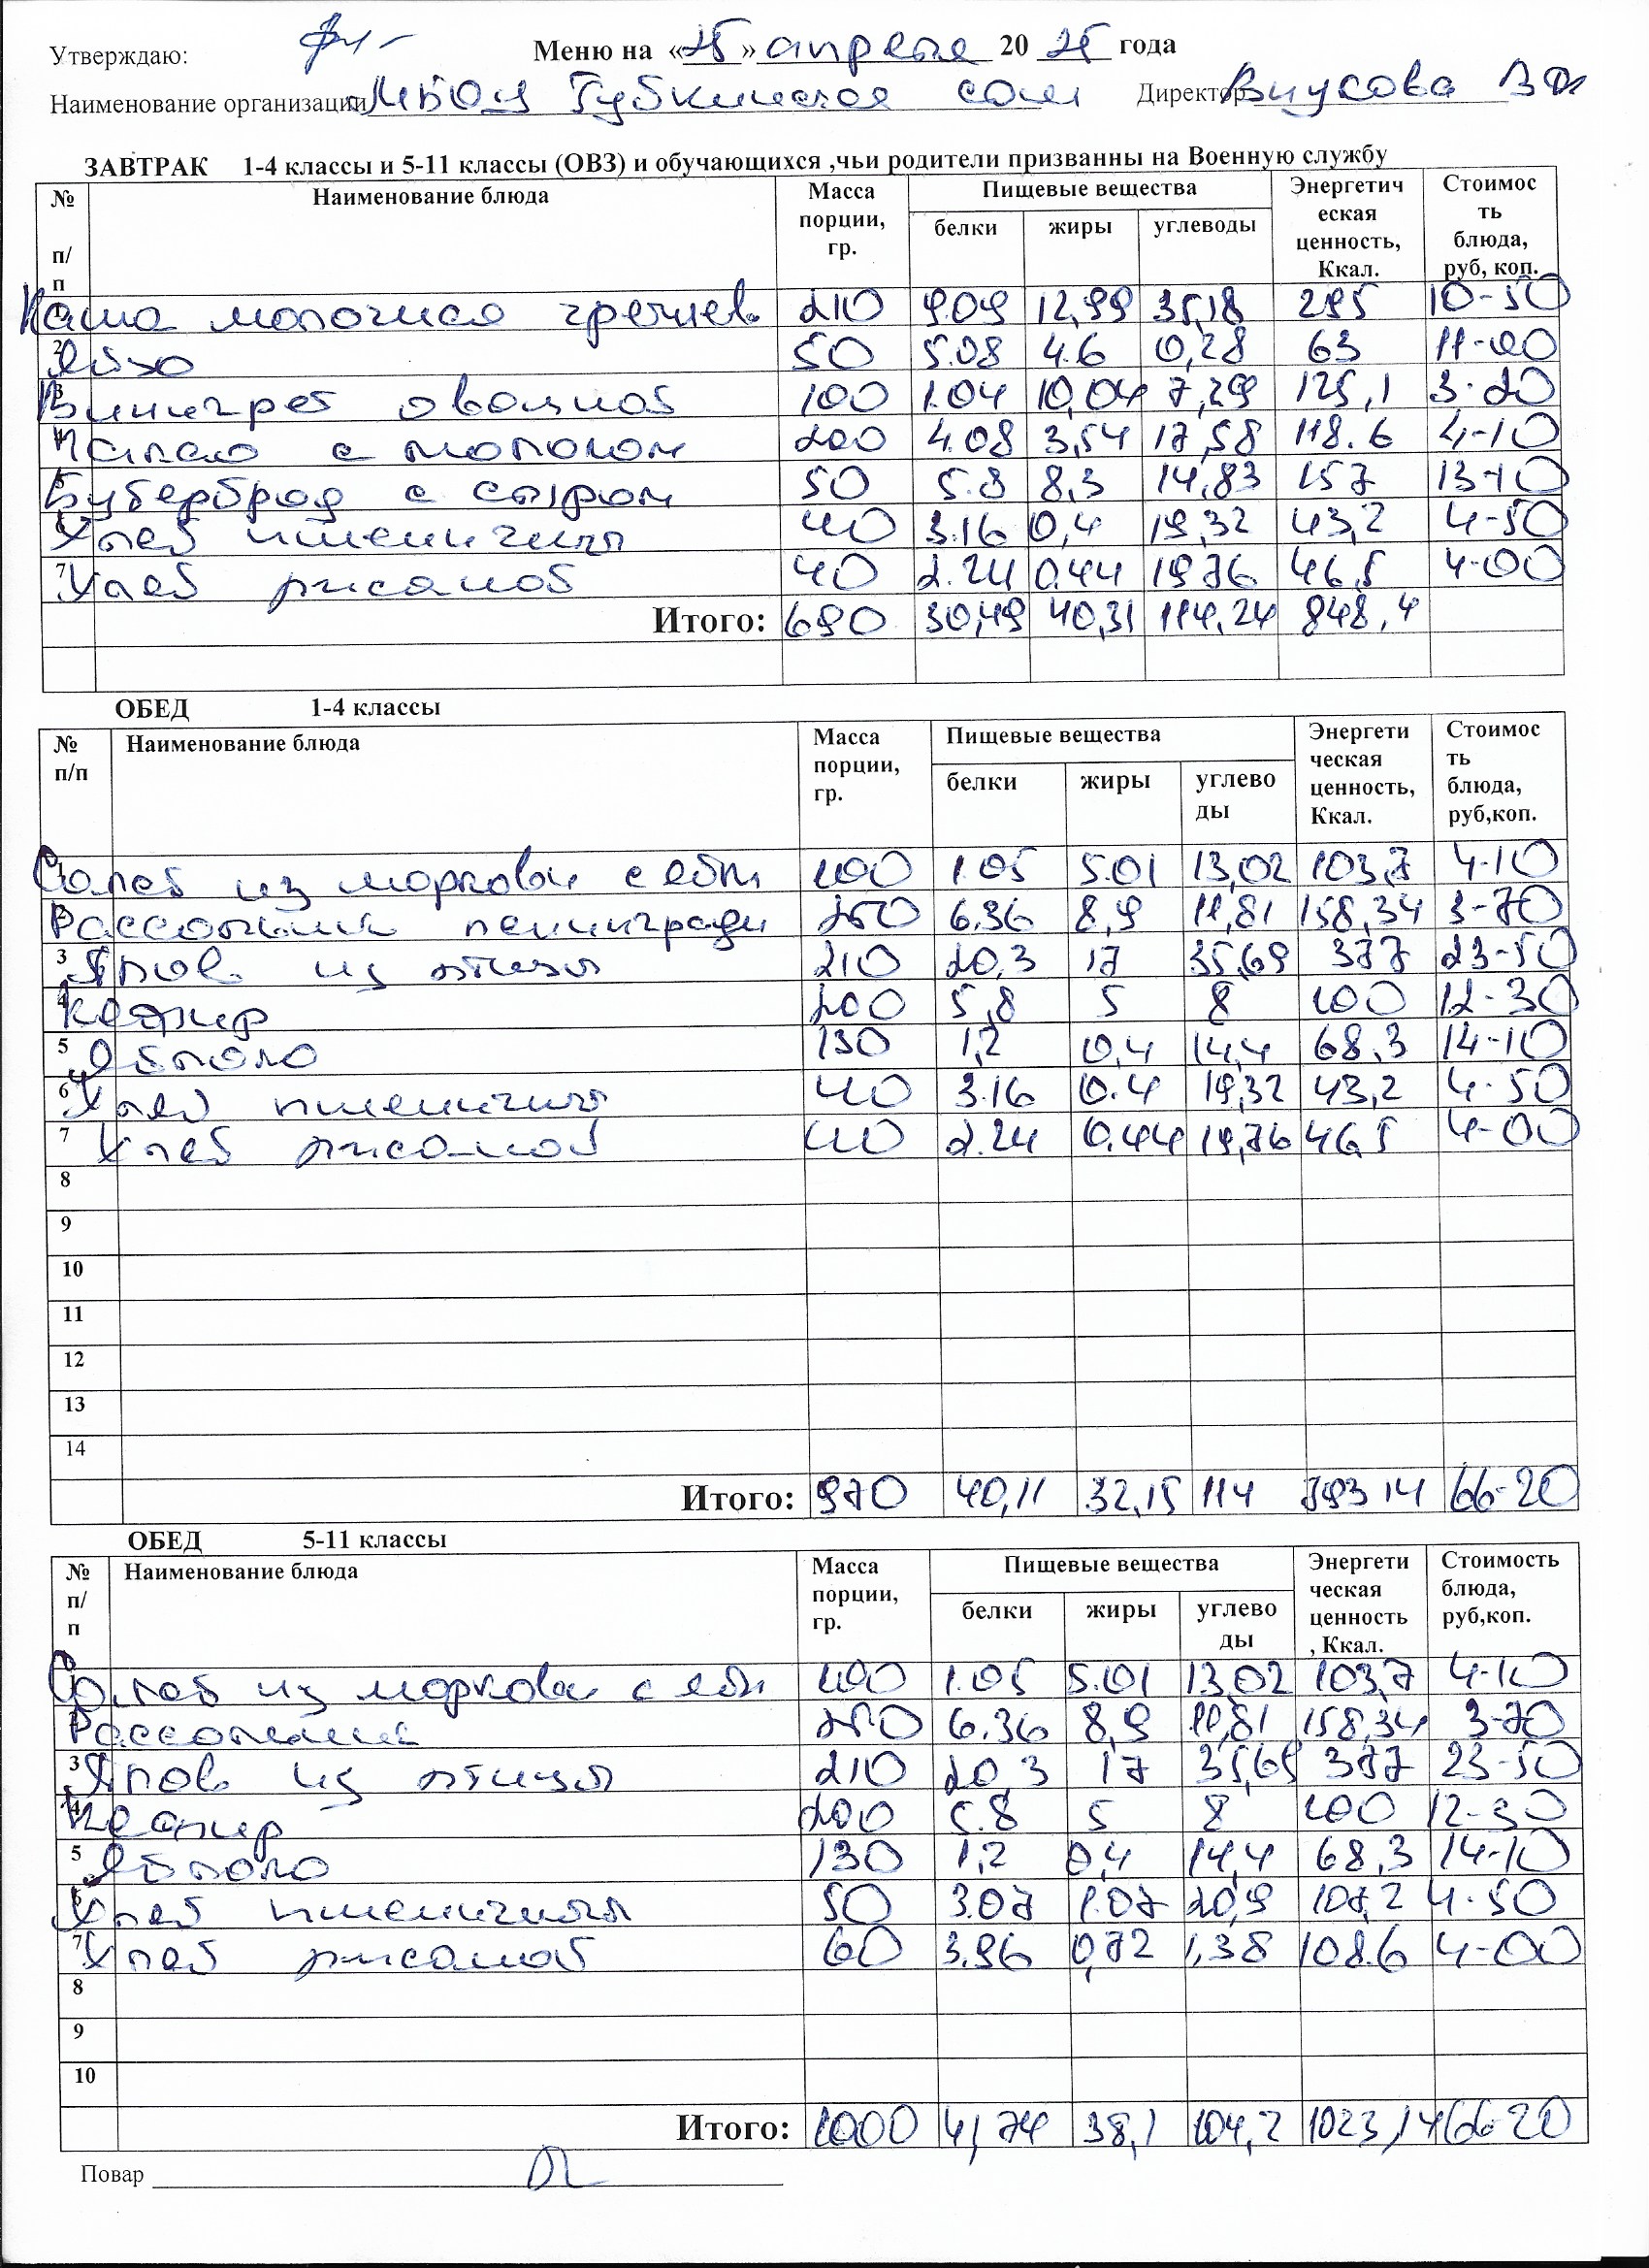 Утверждаю: Меню на «25» апреля 20 25 года
Наименование организации МБОУ Губкинская сош Директор Внусова В
ЗАВТРАК 1-4 классы и 5-11 классы (ОВЗ) и обучающихся ,чьи родители призванны на Военную службу
№ п/п Наименование блюда Масса порции, гр. Пищевые вещества Энергетическая ценность, Ккал. Стоимость блюда, руб, коп.
белки жиры углеводы
Каша молочная гречнев. 210 9.09 12,99 35,18 295 10-50
2 Яйцо 50 5.08 4.6 0,28 63 11-00
3 Винигрет овощной 100 1.04 10,04 7,29 125,1 3-20
4 Какао с молоком 200 4.08 3,54 17,58 118.6 4-10
Бутерброд с сыром 50 5.8 8,3 14,83 157 13-10
Хлеб пшеничный 40 3.16 0,4 19,32 43,2 4-50
7 Хлеб ржаной 40 2.24 0.44 19,76 46,5 4-00
Итого: 690 30,49 40,31 114,24 848,4
ОБЕД 1-4 классы
№ п/п Наименование блюда Масса порции, гр. Пищевые вещества Энергетическая ценность, Ккал. Стоимость блюда, руб,коп.
белки жиры углеводы
Салат из моркови с ябл 100 1.05 5.01 13,02 103,7 4-10
Рассольник ленинградс 250 6.36 8,9 11,81 158,34 3-70
3 Плов из птицы 210 20,3 17 35,69 377 23-50
4 Кефир 200 5,8 5 8 100 12-30
5 Яблоко 130 1,2 0,4 14,4 68,3 14-10
6 Хлеб пшеничный 40 3.16 0.4 19,32 43,2 4-50
7 Хлеб ржаной 40 2.24 0.44 19,76 46,5 4-00
8
9
10
11
12
13
14
Итого: 970 40,11 32,15 114 793 14 66-20
ОБЕД 5-11 классы
№ п/п Наименование блюда Масса порции, гр. Пищевые вещества Энергетическая ценность, Ккал. Стоимость блюда, руб,коп.
белки жиры углеводы
Салат из моркови с ябл 100 1.05 5.01 13,02 103,7 4-10
Рассольник 250 6.36 8,9 11,81 158,34 3-70
3 Плов из птицы 210 20,3 17 35,69 377 23-50
4 Кефир 200 5.8 5 8 100 12-30
5 Яблоко 130 1,2 0,4 14,4 68,3 14-10
Хлеб пшеничный 50 3.07 1.07 20,9 107,2 4-50
7 Хлеб ржаной 60 3.96 0,72 1,38 108.6 4-00
8
9
10
Итого: 1000 41,74 38,1 104,2 1023,14 66-20
Повар